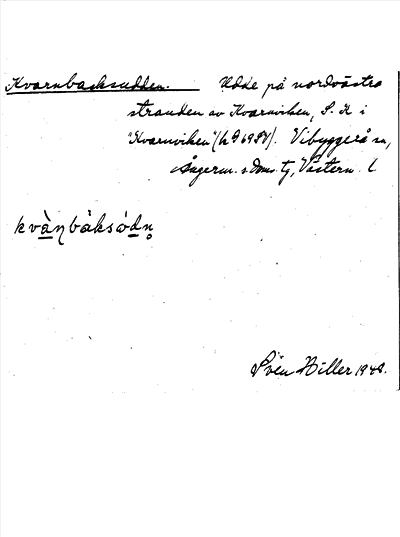 Kvarnbacksudden. Udde på nordvästra
stranden av Kvarnviken, S. K i
"Kvarnviken" Vibyggerå sn,
Ångerm. s. Doms. tg, Västern. l
kvàηbàksódn̥
Sven Hiller 1948.